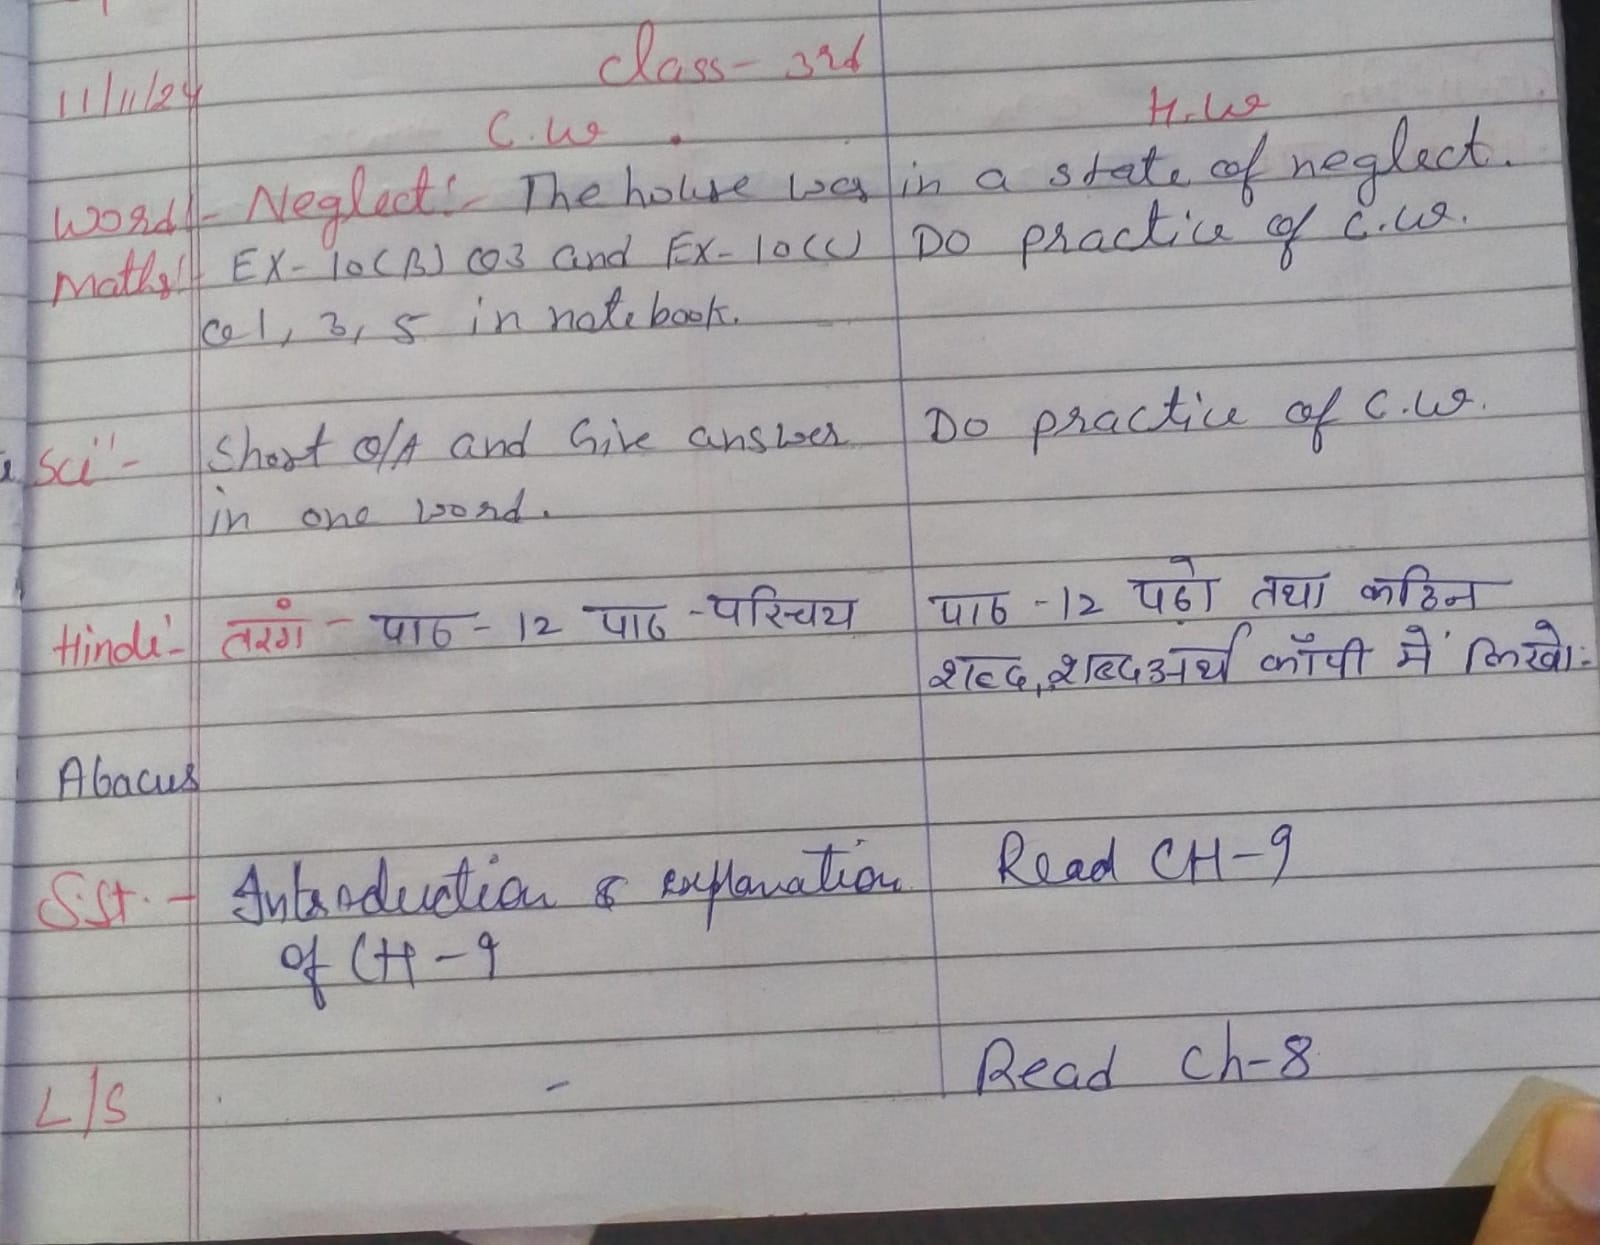 class - 3rd
11/11/24
C.W. H.W
Word:- Neglect:- The house was in a state of neglect.
Maths:- EX-10(B) Q3 and EX-10(C) Do practice of C.W.
Q1, 3, 5 in notebook.
Sci:- Short Q/A and Give answer Do practice of C.W.
in one word.
Hindi:- तरंग - पाठ - 12 पाठ - परिचय पाठ - 12 पढ़ो तथा कठिन
शब्द, शब्दअर्थ कॉपी में लिखो:
Abacus
S.St. - Introduction & explanation Read CH-9
of CH-9
L/S - Read Ch-8